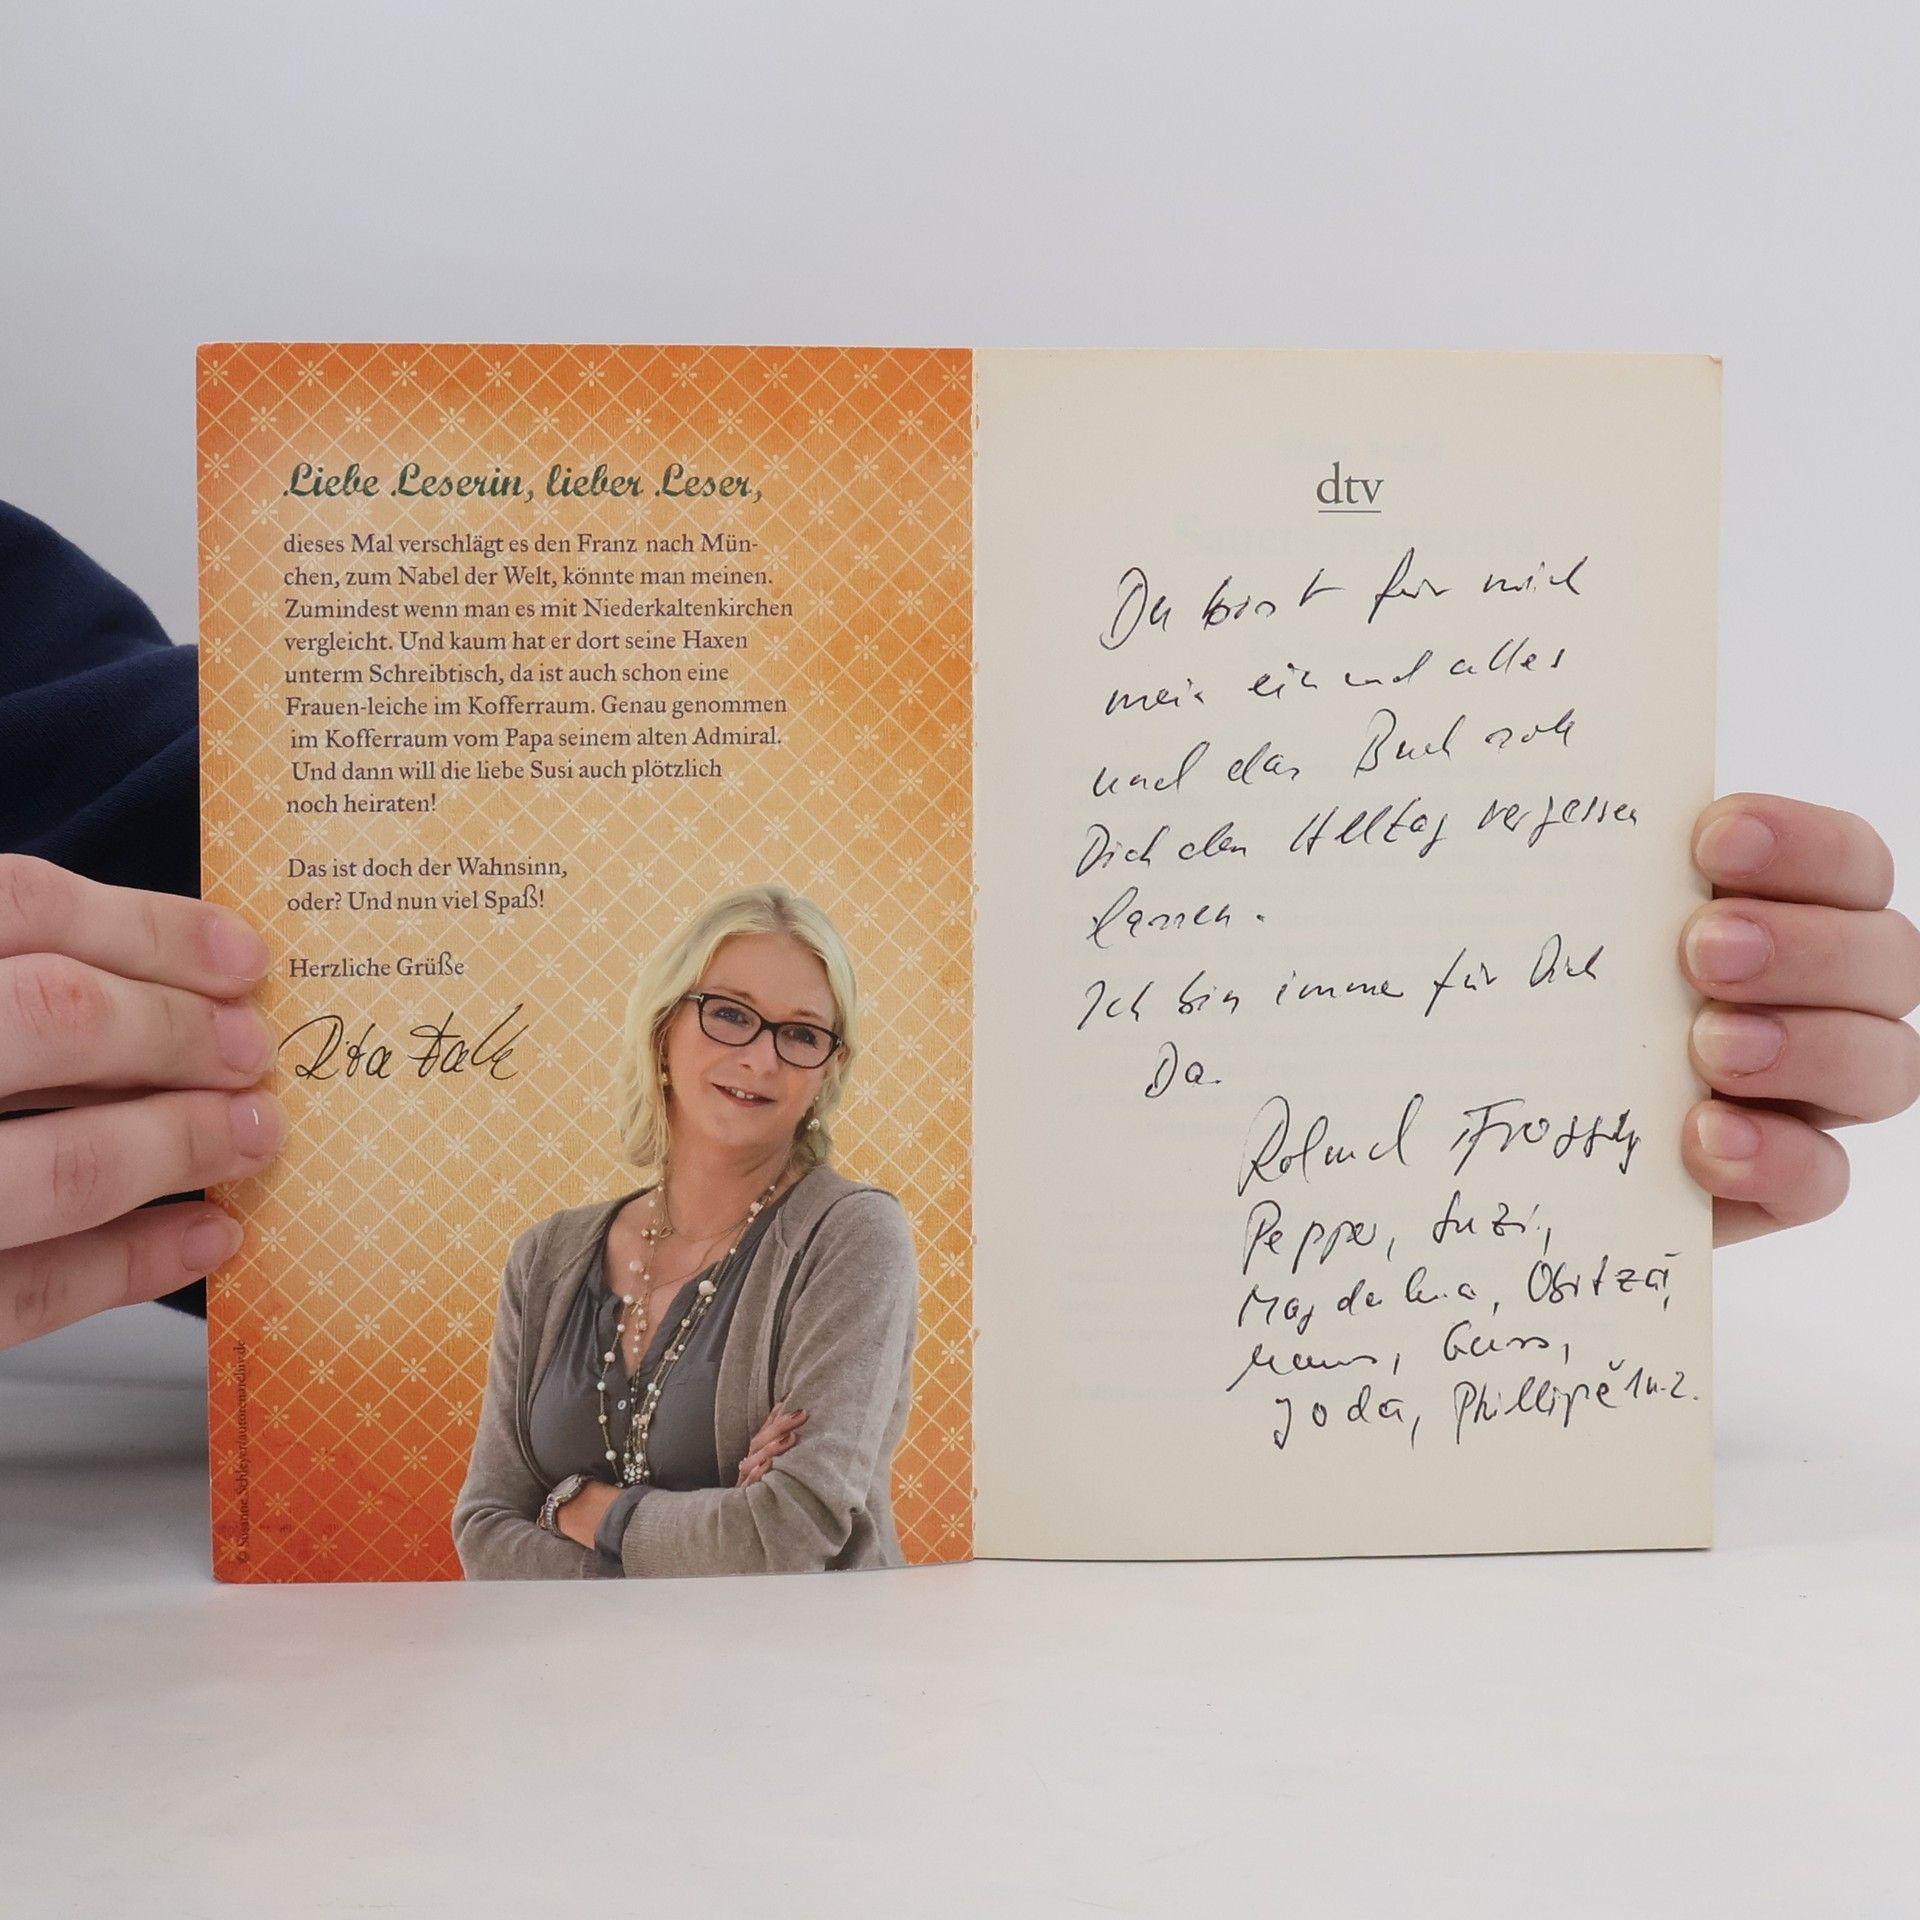 Liebe Leserin, lieber Leser,
dieses Mal verschlägt es den Franz nach Mün-
chen, zum Nabel der Welt, könnte man meinen.
Zumindest wenn man es mit Niederkaltenkirchen
vergleicht. Und kaum hat er dort seine Haxen
unterm Schreibtisch, da ist auch schon eine
Frauen-leiche im Kofferraum. Genau genommen
im Kofferraum vom Papa seinem alten Admiral.
Und dann will die liebe Susi auch plötzlich
noch heiraten!
Das ist doch der Wahnsinn,
oder? Und nun viel Spaß!
Herzliche Grüße
Rita Falk
© Susanne Schleyer/autorenarchiv.de
dtv
Du bist für mich
mein ein und alles
und das Buch soll
Dich den Alltag vergessen
lassen.
Ich bin immer für Dich
Da.
Roland
Pepper, Suzi,
Magdalena,
Maus,
Joda, Phillipè 1u.2.